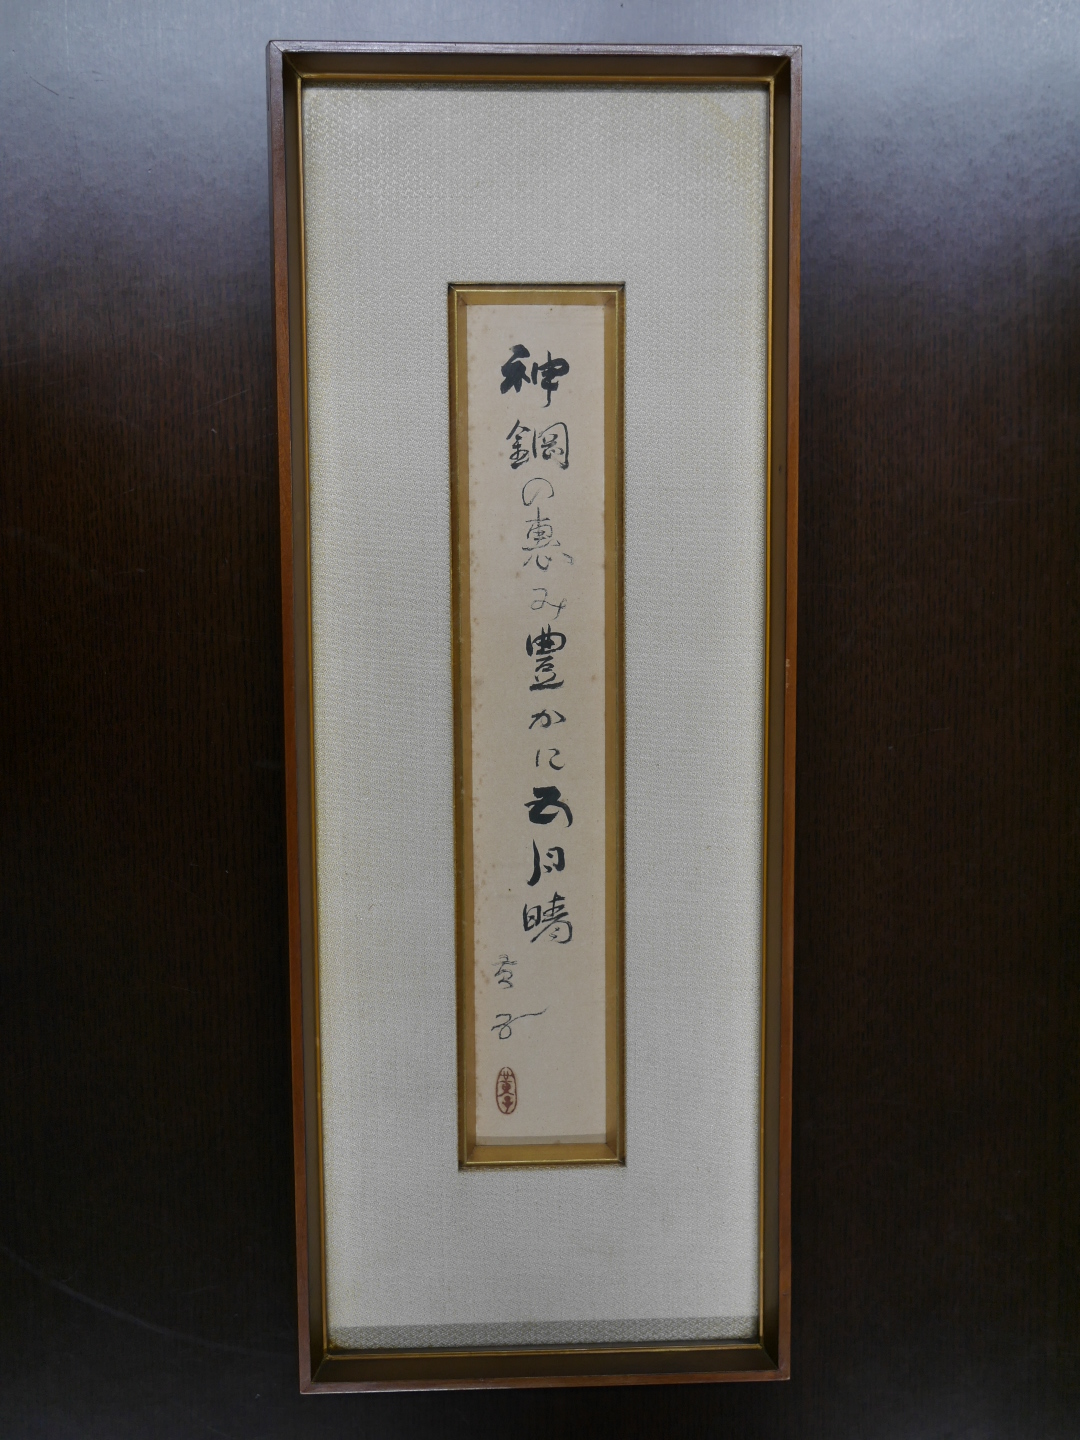 神鋼の恵み豊かに五月晴
黄子